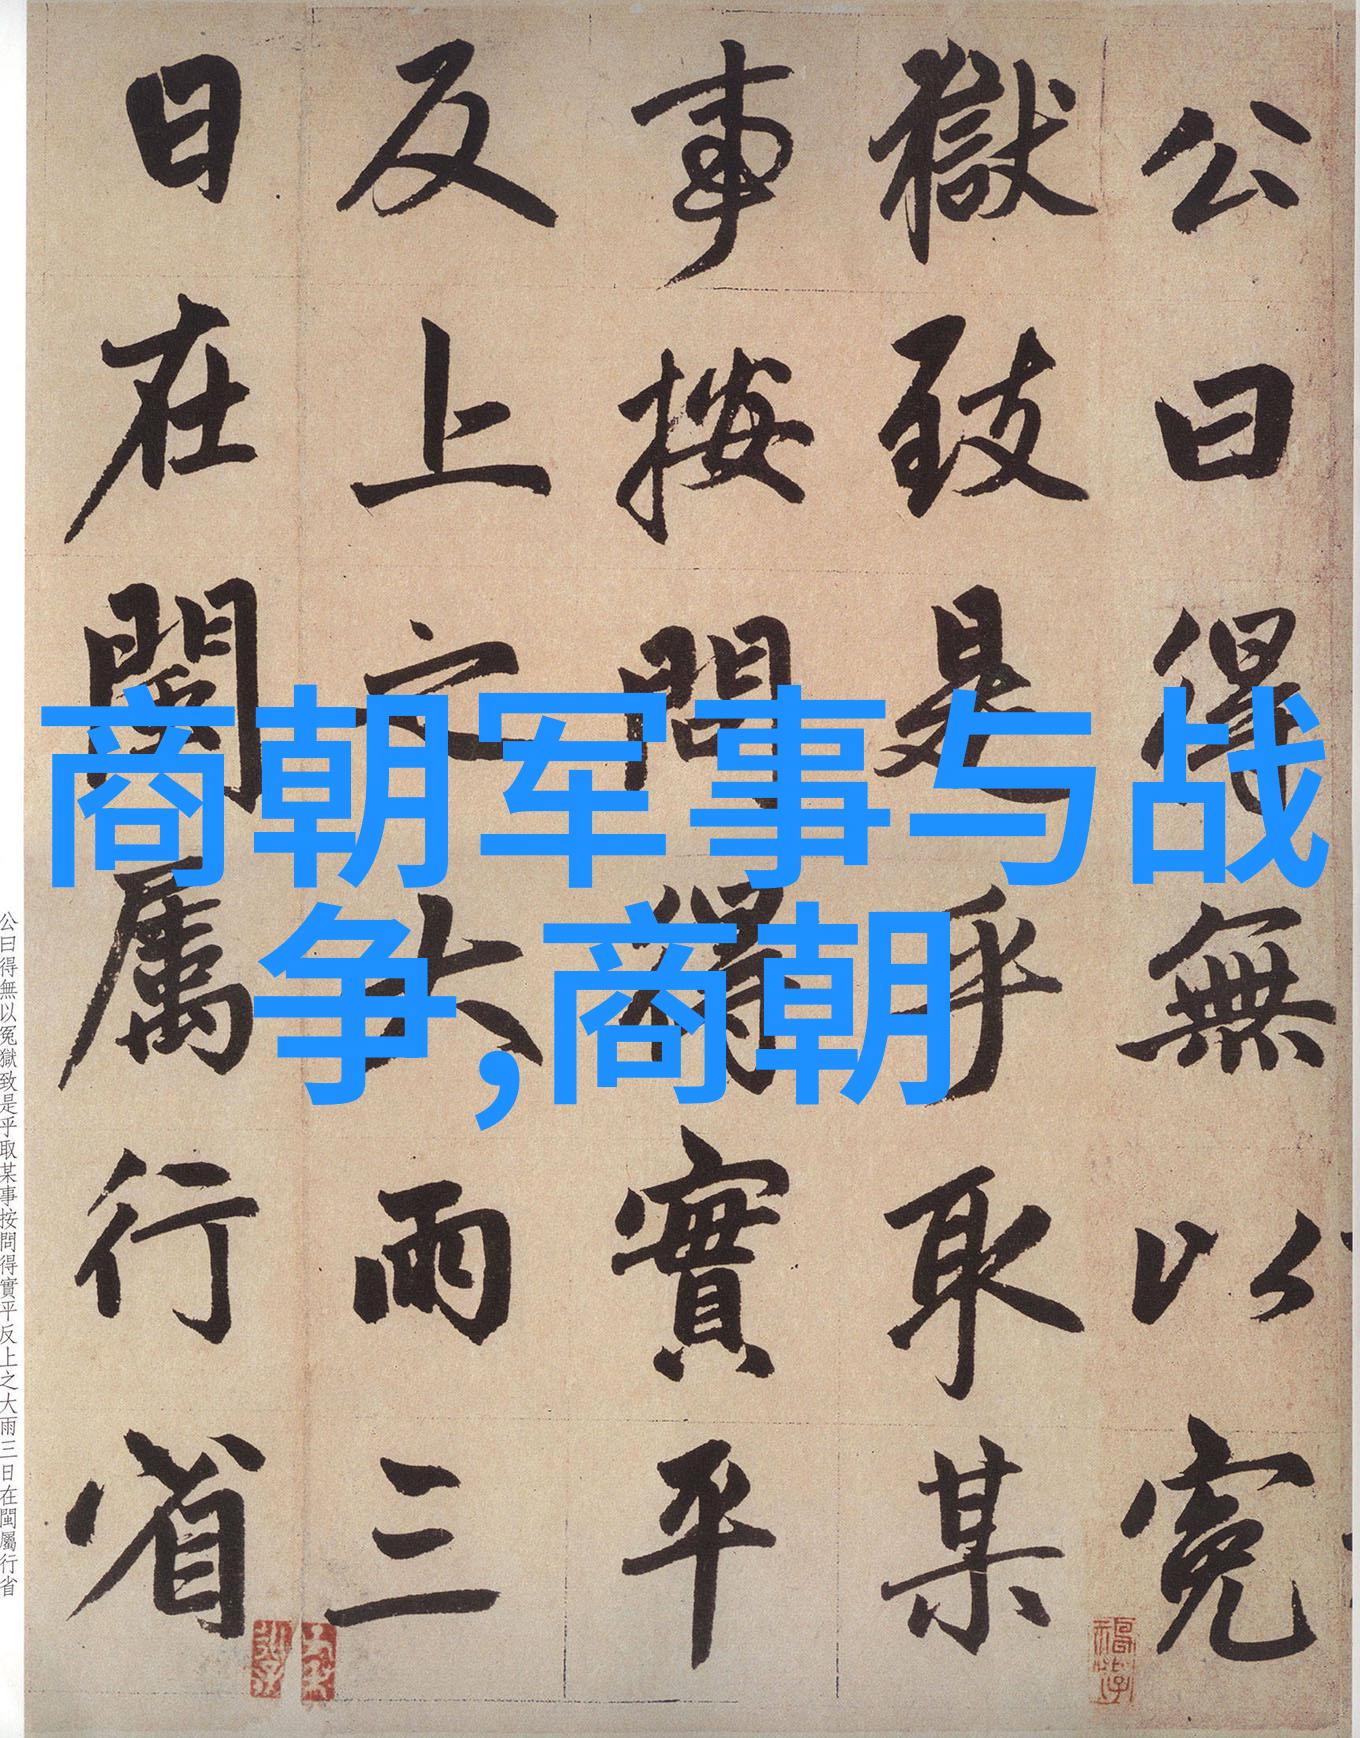 公曰得無以冤
獄致是乎取某
事按問得實平
反上之大雨三
日在閩屬行省
商朝军事与战
争,商朝
公曰得無以冤獄致是乎取某事按問得實平反上之大雨三日在閩屬行省